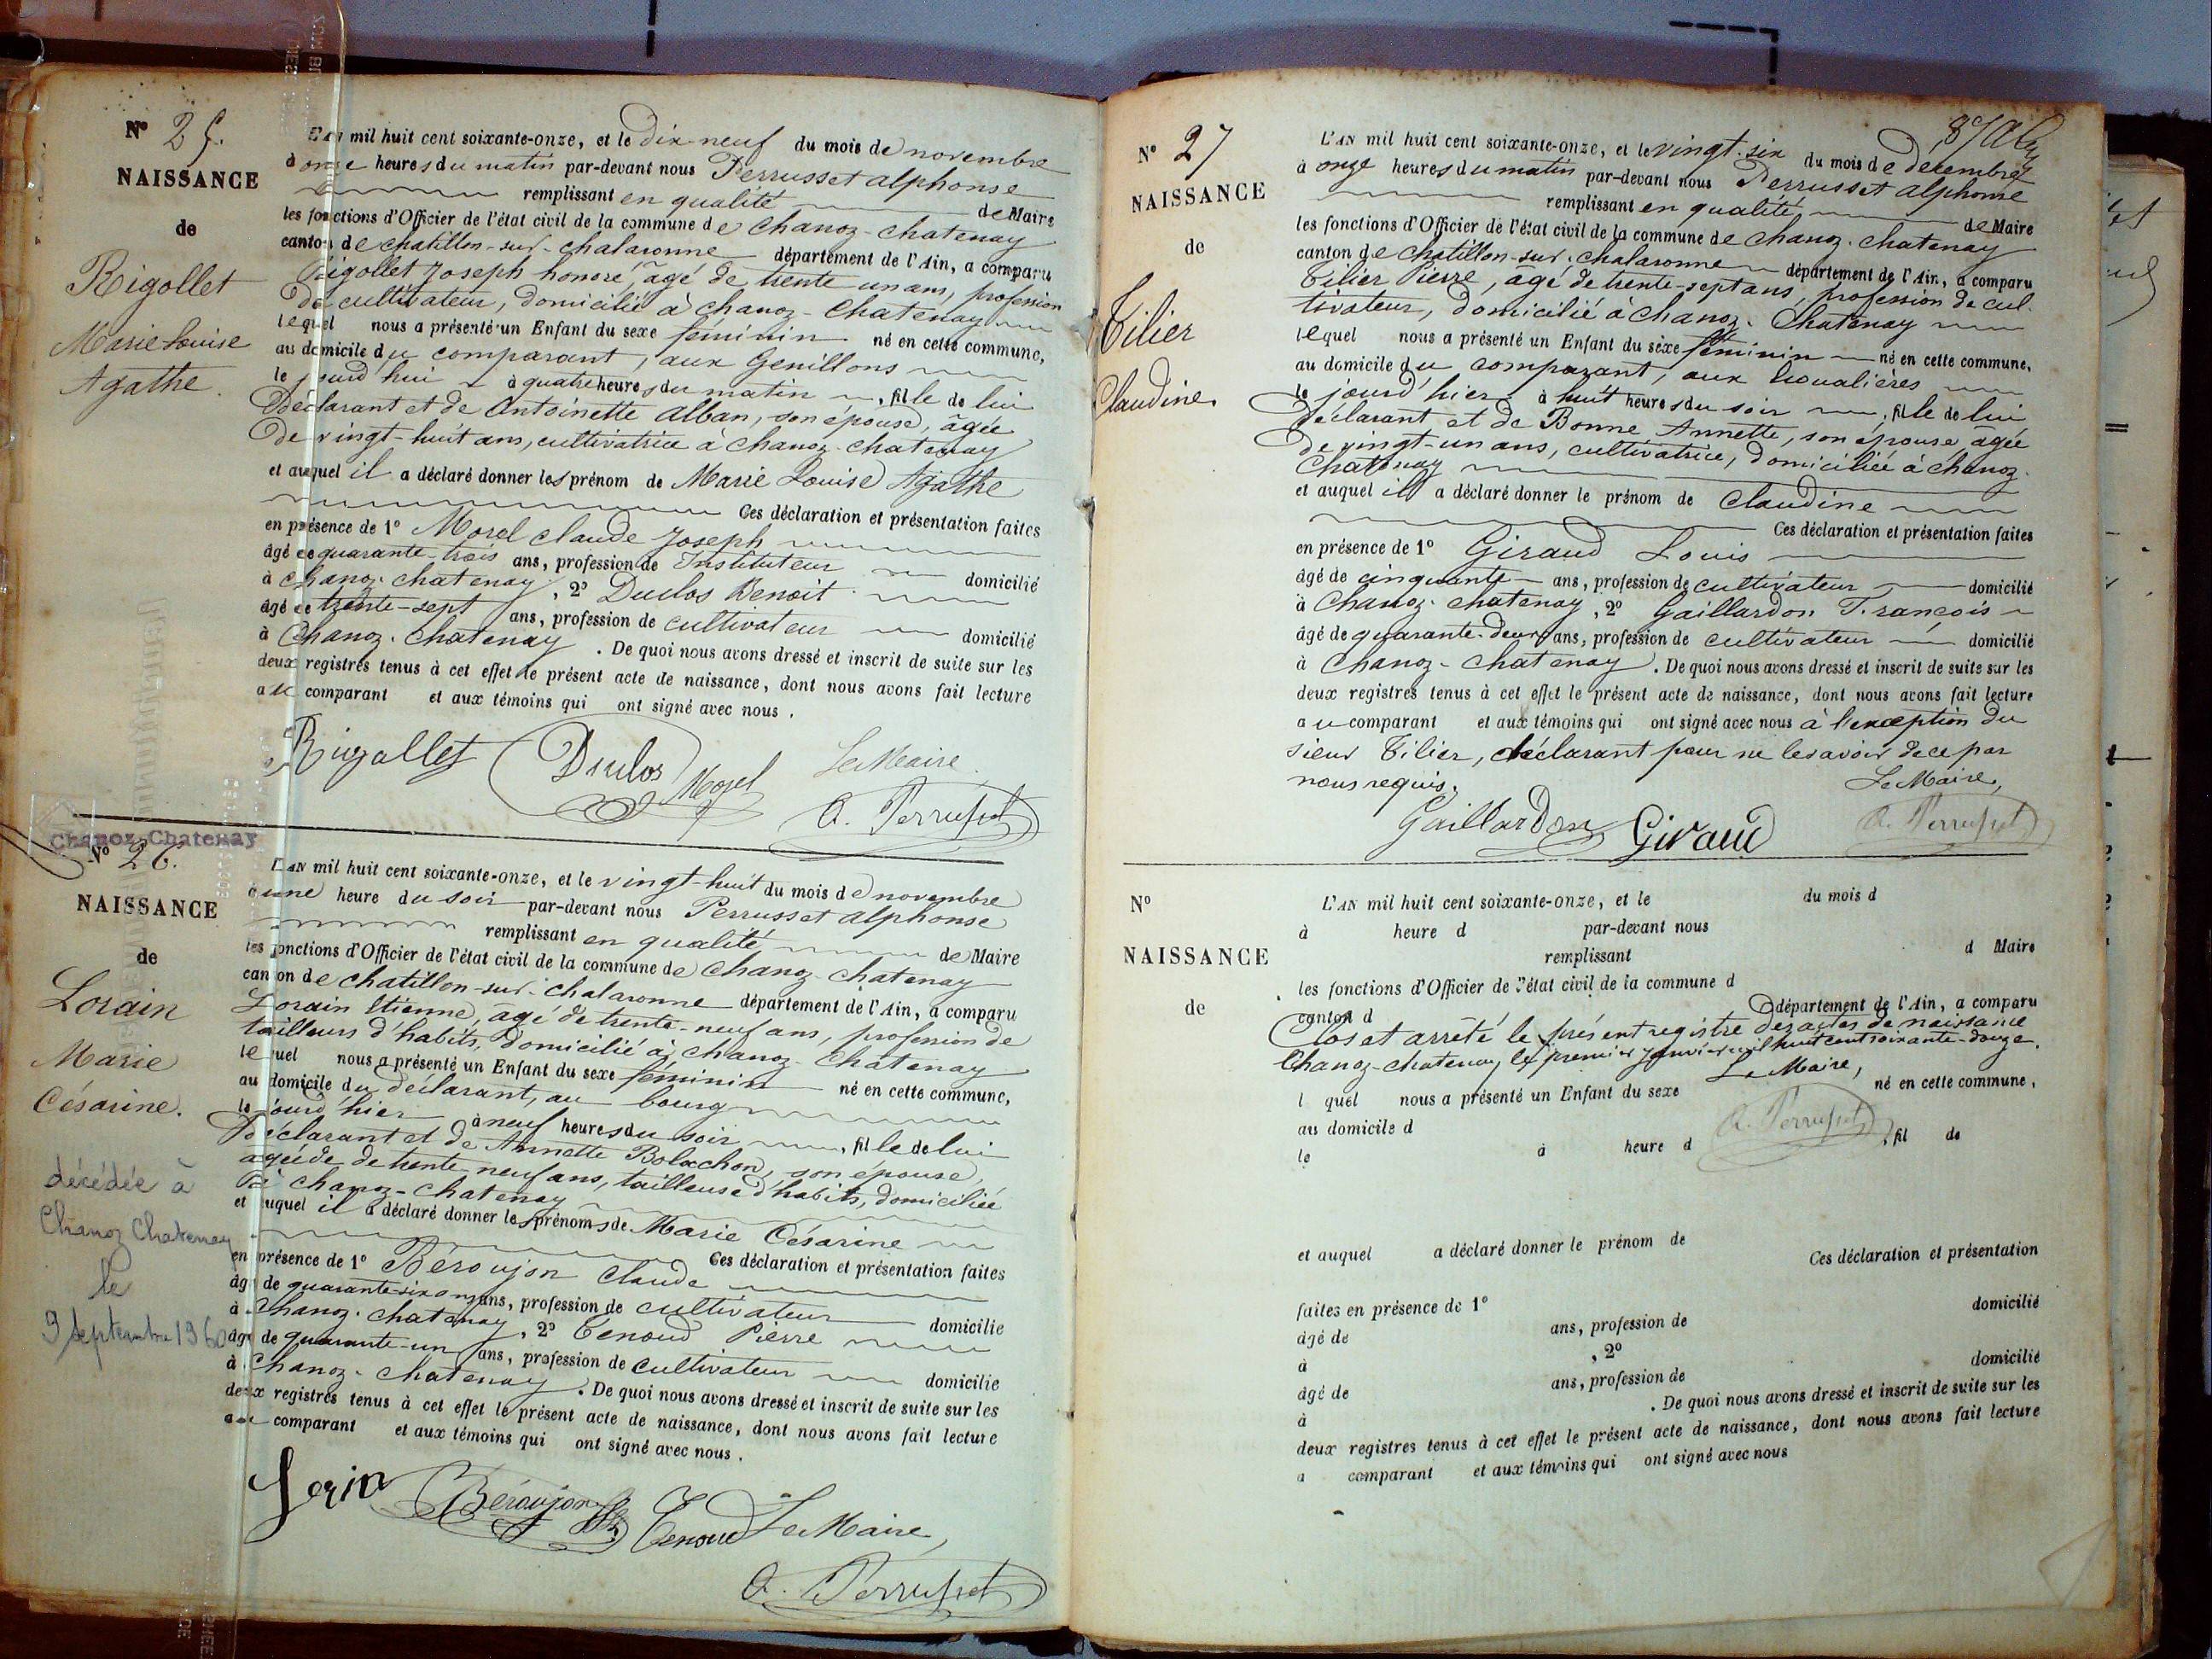 N° 25.
NAISSANCE
de
Rigollet
Marie Louise
Agathe.
L'AN mil huit cent soixante-onze, et le dix-neuf du mois de novembre
à onze heures du matin par-devant nous Perrusset alphonse
remplissant en qualité de Maire
les fonctions d'Officier de l'état civil de la commune de Chanoz-chatenay
canton de chatillon-sur-chalaronne département de l'Ain, a comparu
Rigollet Joseph honoré, âgé de trente un ans, profession
de cultivateur, domicilié à chanoz-Chatenay
lequel nous a présenté un Enfant du sexe féminin né en cette commune,
au domicile du comparant, aux Genillons
le jourd'hui à quatre heures du matin, fille de lui
Déclarant et de Antoinette Alban, son épouse, âgée
de vingt-huit ans, cultivatrice à chanoz-chatenay
et auquel il a déclaré donner les prénom de Marie Louise Agathe
Ces déclaration et présentation faites
en présence de 1° Morel claude Joseph
âgé de quarante-trois ans, profession de Instituteur domicilié
à chanoz-chatenay, 2° Duclos Benoit
âgé de trente-sept ans, profession de cultivateur domicilié
à Chanoz-Chatenay. De quoi nous avons dressé et inscrit de suite sur les
deux registres tenus à cet effet le présent acte de naissance, dont nous avons fait lecture
au comparant et aux témoins qui ont signé avec nous.
Rigollet Duclos Morel Le Maire
A. Perrusset
Chanoz-Chatenay
N° 26.
NAISSANCE
de
Lorain
Marie
Césarine.
décédée à
Chanoz Chatenay
le
9 septembre 1960
L'AN mil huit cent soixante-onze, et le vingt-huit du mois de novembre
à une heure du soir par-devant nous Perrusset alphonse
remplissant en qualité de Maire
les fonctions d'Officier de l'état civil de la commune de Chanoz chatenay
canton de chatillon-sur-chalaronne département de l'Ain, a comparu
Lorain Etienne, âgé de trente-neuf ans, profession de
tailleurs d'habits, domicilié à chanoz-Chatenay
lequel nous a présenté un Enfant du sexe féminin né en cette commune,
au domicile du déclarant, au bourg
le jourd'hier à neuf heures du soir, fille de lui
Déclarant et de Annette Bolachon, son épouse,
agée de de trente neuf ans, tailleuse d'habits, domiciliée
à chanoz-chatenay
et auquel il a déclaré donner les prénoms de Marie Césarine
Ces déclaration et présentation faites
en présence de 1° Béroujon Claude
âgé de quarante-six ans ans, profession de cultivateur domicilié
à Chanoz-chatenay, 2° Tenoud Pierre
âgé de quarante-un ans, profession de cultivateur domicilié
à Chanoz-chatenay. De quoi nous avons dressé et inscrit de suite sur les
deux registres tenus à cet effet le présent acte de naissance, dont nous avons fait lecture
au comparant et aux témoins qui ont signé avec nous.
Béroujon Tenoud Le Maire,
A. Perrusset
N° 27
NAISSANCE
de
Tilier
Claudine.
L'AN mil huit cent soixante-onze, et le vingt-six du mois de décembre
à onze heures du matin par-devant nous Perrusset Alphonse
remplissant en qualité de Maire
les fonctions d'Officier de l'état civil de la commune de Chanoz-chatenay
canton de Chatillon-sur-chalaronne département de l'Ain, a comparu
Tilier Pierre, âgé de trente-sept ans, profession de cul-
tivateur, domicilié à Chanoz-Chatenay
lequel nous a présenté un Enfant du sexe féminin né en cette commune,
au domicile du comparant, aux
le jourd'hier à huit heures du soir, fille de lui
Déclarant et de Bonne Annette, son épouse, âgée
de vingt-un ans, cultivatrice, domiciliée à chanoz-
Chatenay
et auquel il a déclaré donner le prénom de Claudine
Ces déclaration et présentation faites
en présence de 1° Giraud Louis
âgé de cinquante ans, profession de cultivateur domicilié
à Chanoz-chatenay, 2° Gaillardon François
âgé de quarante-deux ans, profession de cultivateur domicilié
à Chanoz-chatenay. De quoi nous avons dressé et inscrit de suite sur les
deux registres tenus à cet effet le présent acte de naissance, dont nous avons fait lecture
au comparant et aux témoins qui ont signé avec nous à l'exception du
sieur Tilier, déclarant pour ne le savoir de ce par
nous requis.
Le Maire,
Gaillardon Giraud A. Perrusset
N°
NAISSANCE
de
L'AN mil huit cent soixante-onze, et le du mois d
à heure d par-devant nous
remplissant d Maire
les fonctions d'Officier de l'état civil de la commune d
canton d département de l'Ain, a comparu
Clos et arrêté le présent registre des actes de naissance
Chanoz-chatenay, le premier janvier mil huit cent soixante-douze.
Le Maire,
l quel nous a présenté un Enfant du sexe né en cette commune,
au domicile d A. Perrusset
le à heure d , fil de
et auquel a déclaré donner le prénom de
Ces déclaration et présentation
faites en présence de 1°
âgé de ans, profession de domicilié
à , 2°
âgé de ans, profession de domicilié
à . De quoi nous avons dressé et inscrit de suite sur les
deux registres tenus à cet effet le présent acte de naissance, dont nous avons fait lecture
a comparant et aux témoins qui ont signé avec nous